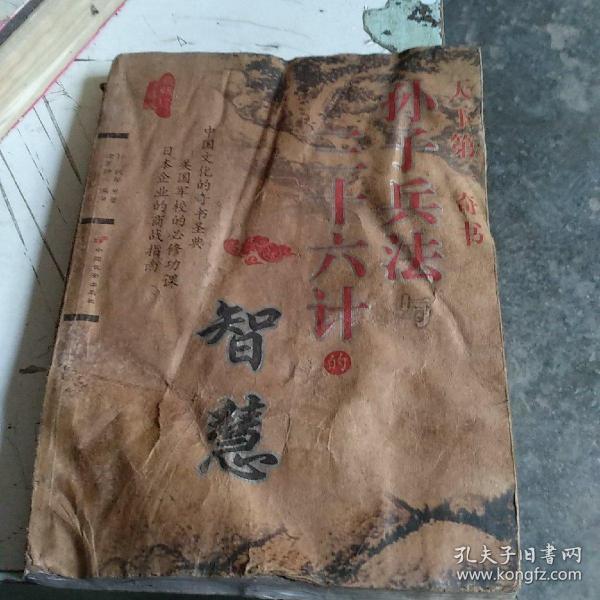 天下第一奇书
孙子兵法与
三十六计的
智慧
中国文化的奇书圣典
美国军校的必修功课
日本企业的商战指南
孔夫子旧书网
www.kongfz.com